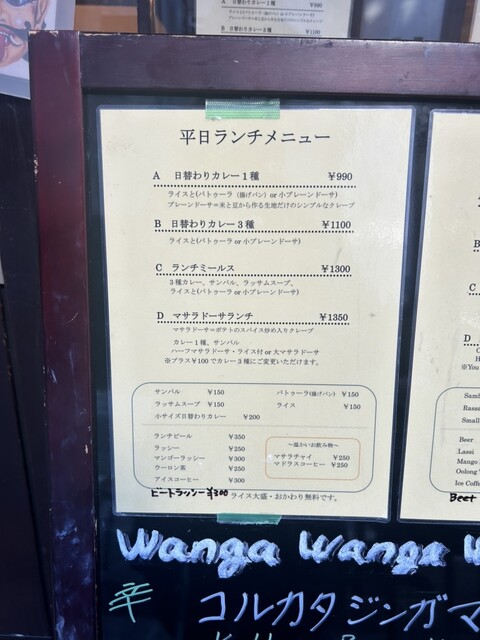 A 日替わりカレー1種 ¥990
B 日替わりカレー3種 ¥1100
平日ランチメニュー
A 日替わりカレー1種 ¥990
ライスと(バトゥーラ (揚げパン) or 小プレーンドーサ)
プレーンドーサ=米と豆から作る生地だけのシンプルなクレープ
B 日替わりカレー3種 ¥1100
ライスと(バトゥーラ or 小プレーンドーサ)
C ランチミールス ¥1300
3種カレー、サンバル、ラッサムスープ、
ライスと(バトゥーラ or 小プレーンドーサ)
D マサラドーサランチ ¥1350
マサラドーサ=ポテトのスパイス炒め入りクレープ
カレー1種、サンバル
ハーフマサラドーサ・ライス付 or 大マサラドーサ
※プラス¥100でカレー3種にご変更いただけます。
サンバル ¥150
ラッサムスープ ¥150
小サイズ日替わりカレー ¥200
バトゥーラ(揚げパン) ¥150
ライス ¥150
ランチビール ¥350
ラッシー ¥250
マンゴーラッシー ¥300
ウーロン茶 ¥250
アイスコーヒー ¥300
ビートラッシー ¥300
~温かいお飲み物~
マサラチャイ ¥250
マドラスコーヒー ¥250
ライス大盛・おかわり無料です。
B
C
D
※You
Samb
Rassa
Small
Beer
Lassi
Mango
Oolong
Ice Coffe
Beet
Wanga Wanga W
辛 コルカタジンガマ